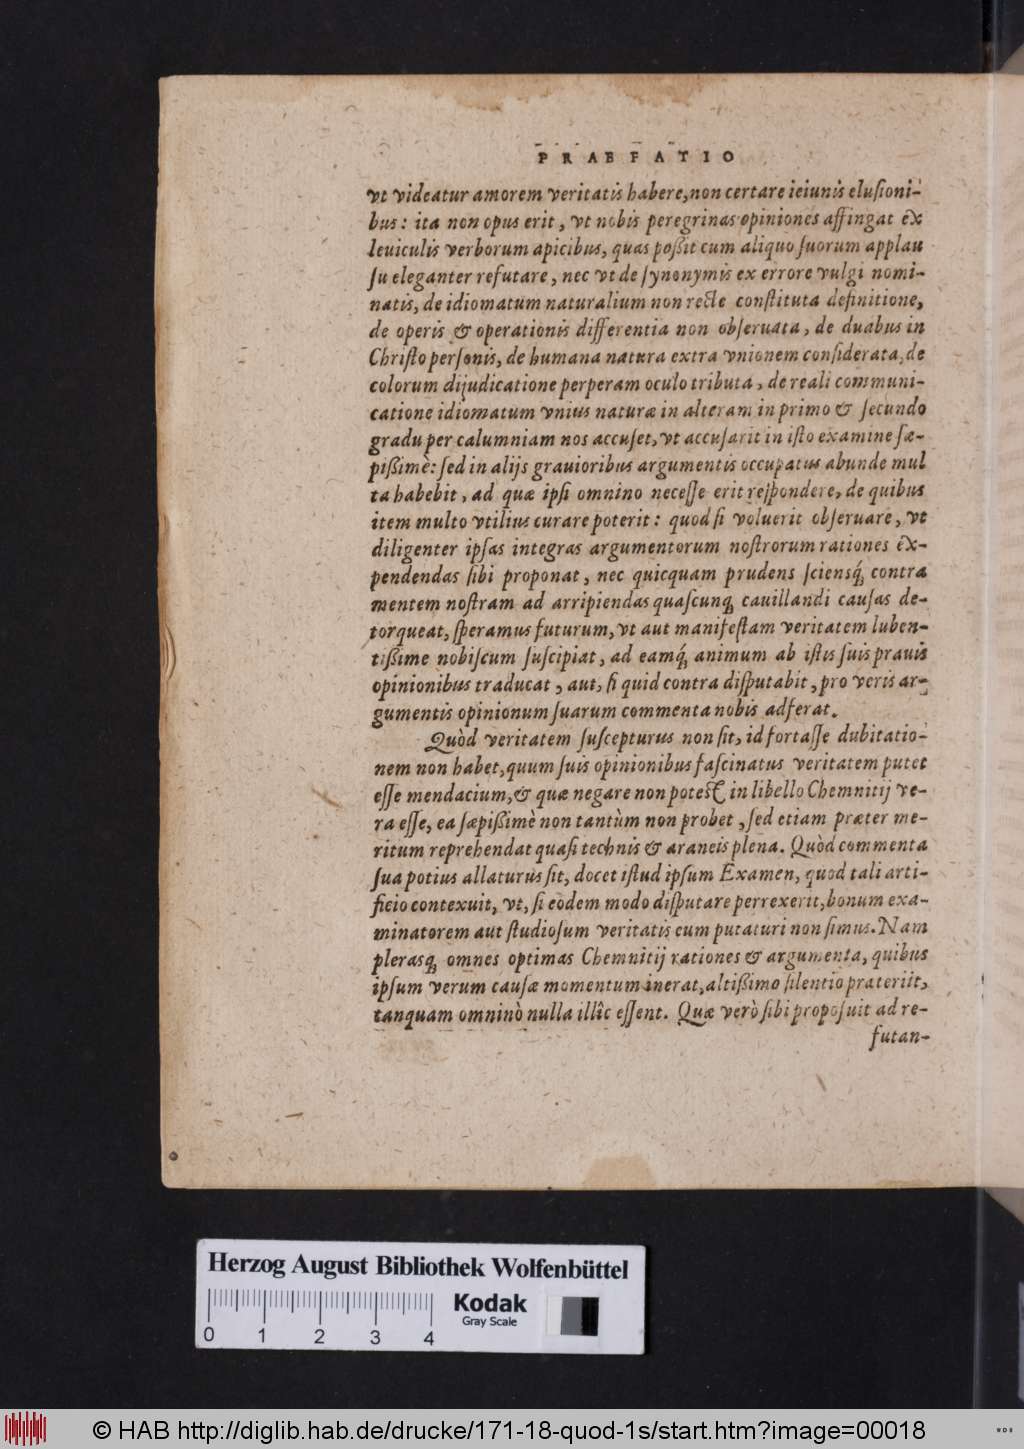 PRAEFATIO
vt videatur amorem veritatis habere, non certare ieiunis elusioni-
bus: ita non opus erit, vt nobis peregrinas opiniones affingat ex
leuiculis verborum apicibus, quas poßit cum aliquo suorum applau
su eleganter refutare, nec vt de synonymis ex errore vulgi nomi-
natis, de idiomatum naturalium non recte constituta definitione,
de operis & operationis differentia non obseruata, de duabus in
Christo personis, de humana natura extra vnionem considerata, de
colorum dijudicatione perperam oculo tributa, de reali communi-
catione idiomatum vnius naturæ in alteram in primo & secundo
gradu per calumniam nos accuset, vt accusarit in isto examine sæ-
pißimè: sed in alijs grauioribus argumentis occupatus abunde mul
ta habebit, ad quæ ipsi omnino necesse erit respondere, de quibus
item multo vtilius curare poterit: quod si voluerit obseruare, vt
diligenter ipsas integras argumentorum nostrorum rationes ex-
pendendas sibi proponat, nec quicquam prudens sciensq́; contra
mentem nostram ad arripiendas quascunq; cauillandi causas de-
torqueat, speramus futurum, vt aut manifestam veritatem luben-
tißime nobiscum suscipiat, ad eamq́; animum ab istis suis prauis
opinionibus traducat, aut, si quid contra disputabit, pro veris ar-
gumentis opinionum suarum commenta nobis adferat.
Quòd veritatem suscepturus non sit, id fortasse dubitatio-
nem non habet, quum suis opinionibus fascinatus veritatem putet
esse mendacium, & quæ negare non potest in libello Chemnitij ve-
ra esse, ea sæpißimè non tantùm non probet, sed etiam præter me-
ritum reprehendat quasi technis & araneis plena. Quòd commenta
sua potius allaturus sit, docet istud ipsum Examen, quod tali arti-
ficio contexuit, vt, si eodem modo disputare perrexerit, bonum exa-
minatorem aut studiosum veritatis eum putaturi non simus. Nam
plerasq; omnes optimas Chemnitij rationes & argumenta, quibus
ipsum verum causæ momentum inerat, altißimo silentio præteriit,
tanquam omninò nulla illîc essent. Quæ verò sibi proposuit ad re-
futan-
Herzog August Bibliothek Wolfenbüttel
0 1 2 3 4
Kodak
Gray Scale
© HAB http://diglib.hab.de/drucke/171-18-quod-1s/start.htm?image=00018